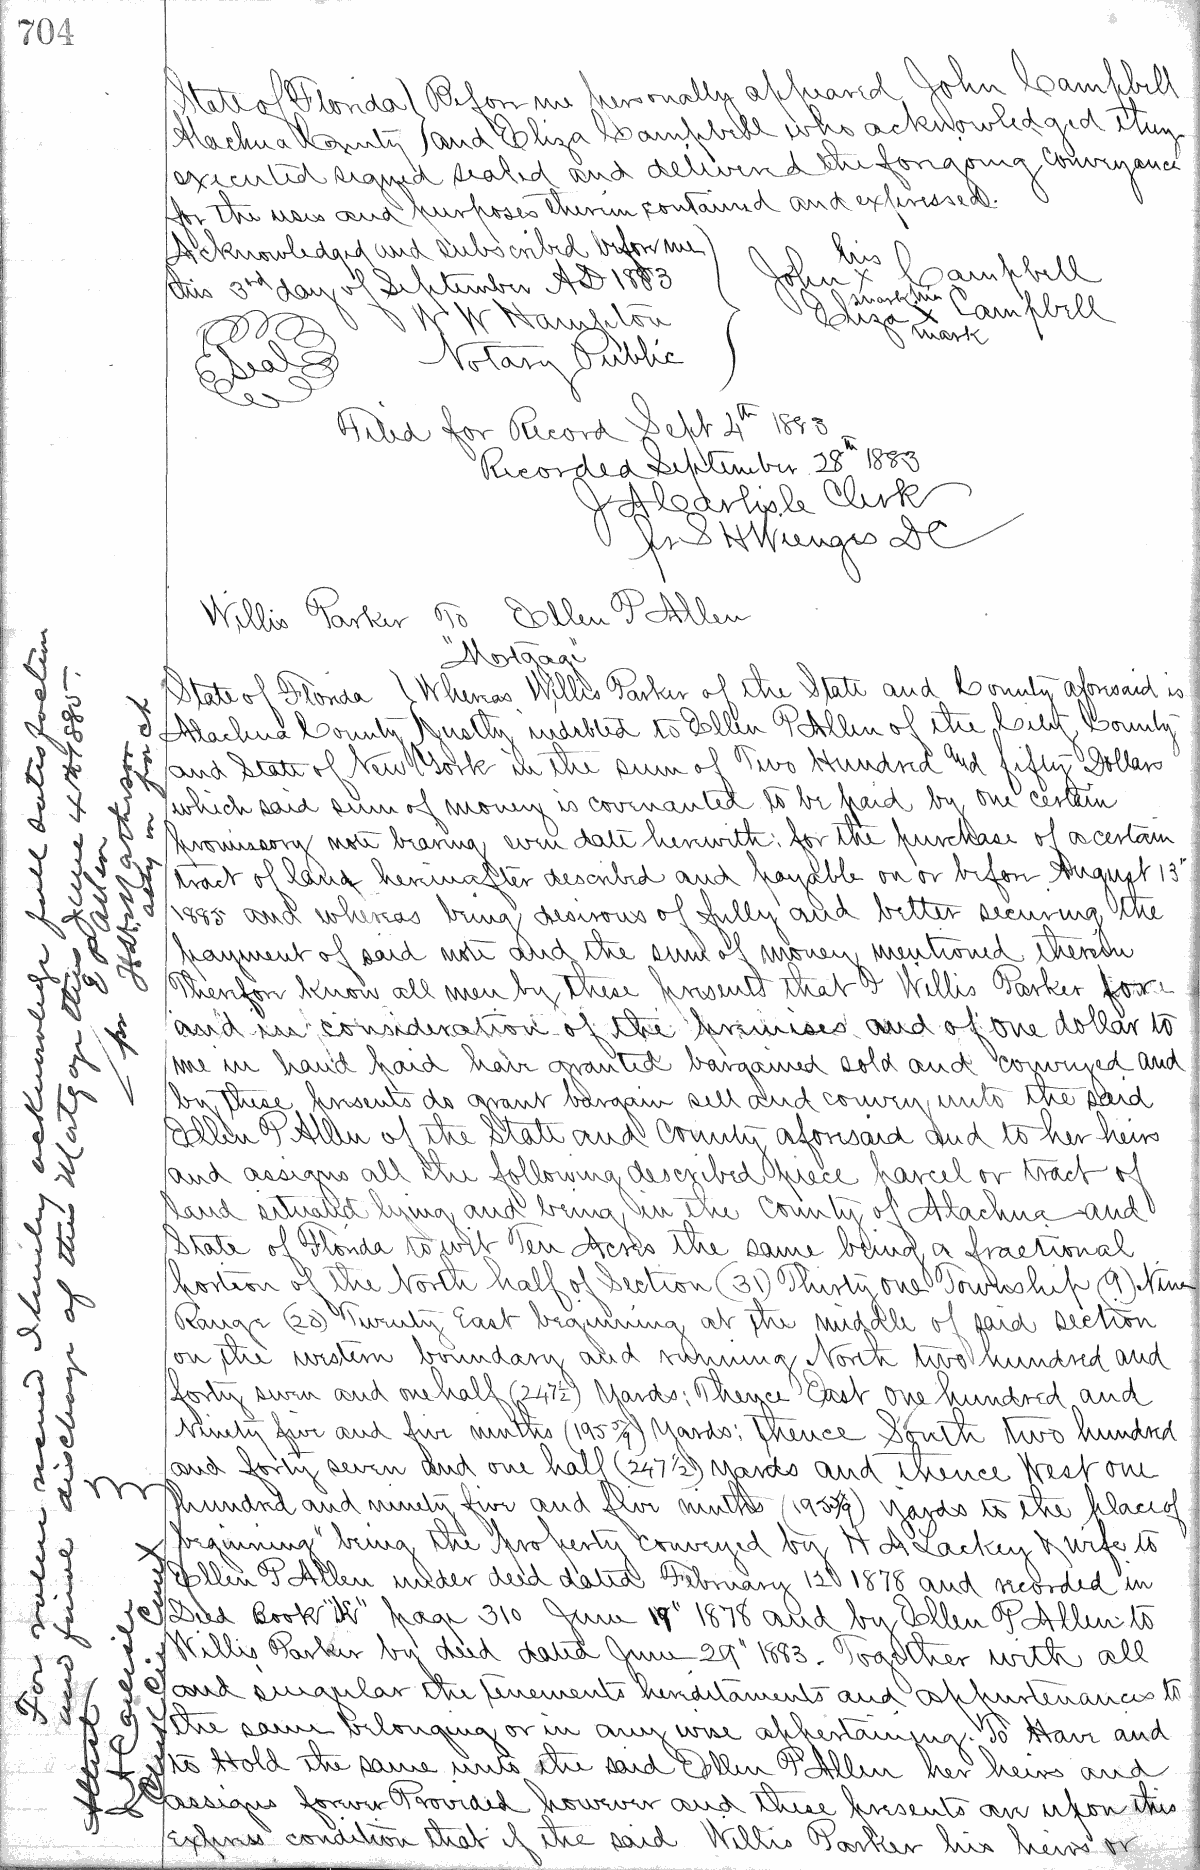 704
State of Florida } Before me personally appeared John Campbell
Alachua County } and Eliza Campbell who acknowledged they
executed signed sealed and delivered the foregoing conveyance
for the uses and purposes therein contained and expressed.
Acknowledged and subscribed before me
this 3rd day of September AD 1883
W W Hampton
Notary Public
Seal
his
John x Campbell
mark her
Eliza x Campbell
mark
Filed for Record Sept 4th 1883
Recorded September 28th 1883
J A Carlisle Clerk
pr S H Wienges DC
Willis Parker To Ellen P Allen
"Mortgage"
State of Florida } Whereas Willis Parker of the State and County aforesaid is
Alachua County } Justly indebted to Ellen P Allen of the City, County
and State of New York in the sum of Two Hundred and fifty Dollars
which said sum of money is covenanted to be paid by one certain
promissory note bearing even date herewith: for the purchase of a certain
tract of land hereinafter described and payable on or before August 13"
1885 and whereas being desirous of fully and better securing the
payment of said note and the sum of money mentioned therein
Therefore know all men by these presents that I Willis Parker for
and in consideration of the premises and of one dollar to
me in hand paid have granted bargained sold and conveyed and
by these presents do grant bargain sell and convey unto the said
Ellen P Allen of the State and County aforesaid and to her heirs
and assigns all the following described piece parcel or tract of
land situated lying and being in the County of Alachua and
State of Florida to wit Ten Acres the same being a fractional
portion of the North half of Section (31) Thirty one Township (9) Nine
Range (20) Twenty East beginning at the middle of said section
on the western boundary and running North two hundred and
forty seven and one half (247½) Yards; Thence East one hundred and
Ninety five and five ninths (195 5/9) Yards; Thence South two hundred
and forty seven and one half (247½) Yards and thence West one
hundred and ninety five and five ninths (195 5/9) Yards to the place of
beginning" being the property conveyed by H A Lackey & wife to
Ellen P Allen under deed dated February 12" 1878 and recorded in
Deed Book "K" page 310 June 19" 1878 and by Ellen P Allen to
Willis Parker by deed dated June 29" 1883. Together with all
and singular the tenements hereditaments and appurtenances to
the same belonging or in any wise appertaining. To Have and
to Hold the same unto the said Ellen P Allen her heirs and
assigns forever Provided however and these presents are upon this
express condition that if the said Willis Parker his heirs or
For value received I hereby acknowledge full satisfaction
and full discharge of this Mortgage this June 4th 1885.
E P Allen
pr
atty in fact
Attest
J A Carlisle
Clerk Cir Court